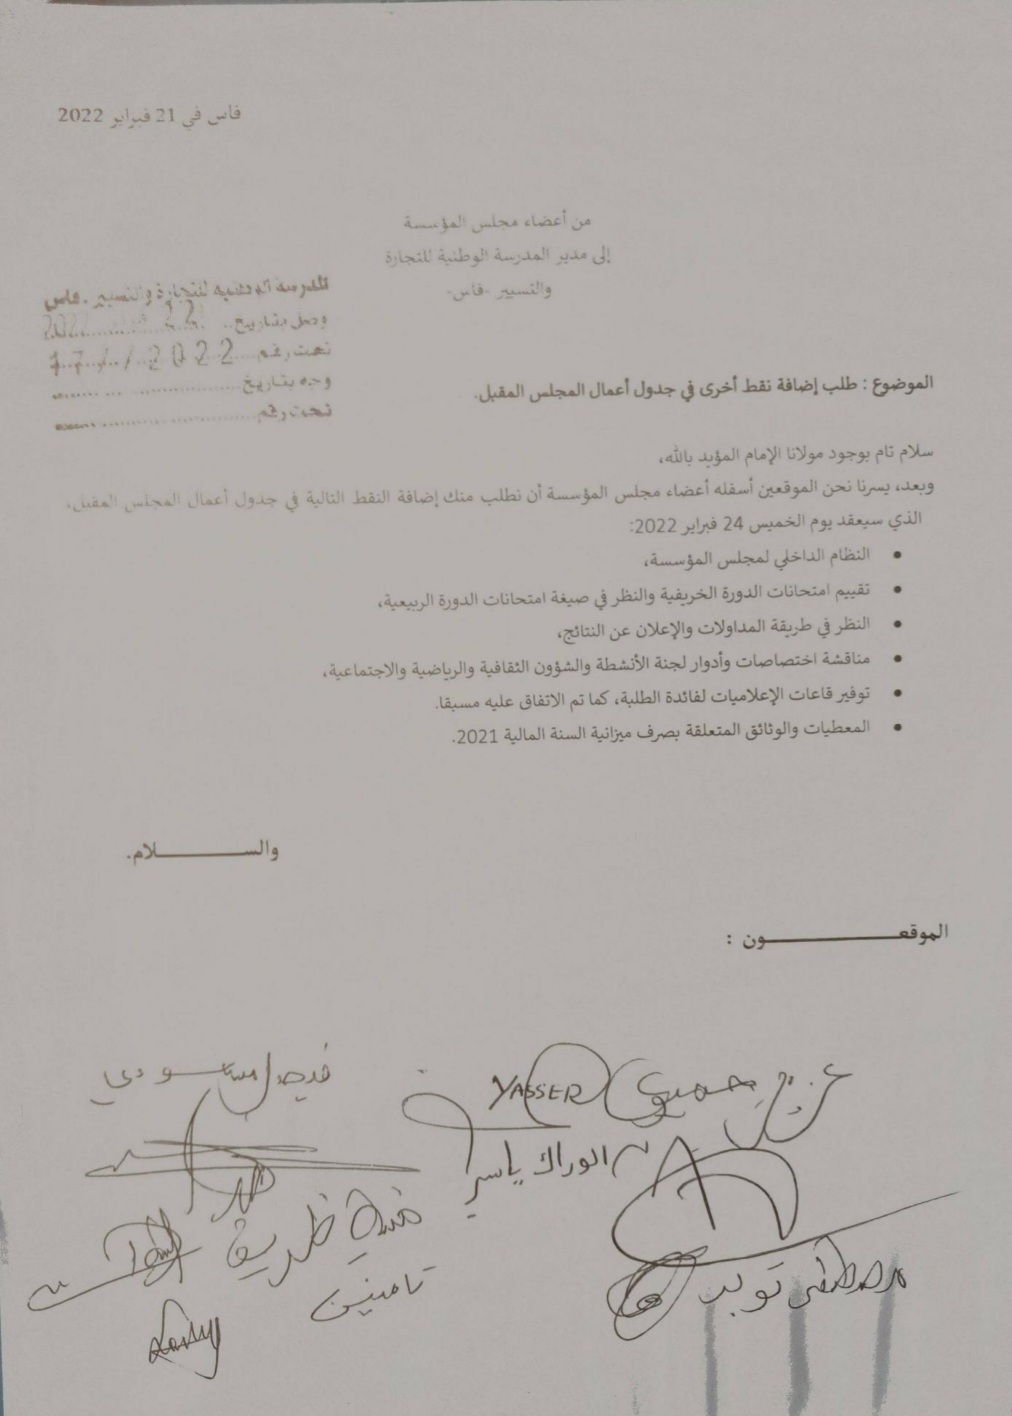 فاس في 21 فبراير 2022
من أعضاء مجلس المؤسسة
إلى مدير المدرسة الوطنية للتجارة
والتسيير -فاس-
المدرسة الوطنية للتجارة والتسيير -فاس
وصل بتاريخ
تحت رقم
وجه بتاريخ
تحت رقم
الموضوع : طلب إضافة نقط أخرى في جدول أعمال المجلس المقبل.
سلام تام بوجود مولانا الإمام المؤيد بالله،
وبعد، يسرنا نحن الموقعين أسفله أعضاء مجلس المؤسسة أن نطلب منك إضافة النقط التالية في جدول أعمال المجلس المقبل،
الذي سيعقد يوم الخميس 24 فبراير 2022:
• النظام الداخلي لمجلس المؤسسة،
• تقييم امتحانات الدورة الخريفية والنظر في صيغة امتحانات الدورة الربيعية،
• النظر في طريقة المداولات والإعلان عن النتائج،
• مناقشة اختصاصات وأدوار لجنة الأنشطة والشؤون الثقافية والرياضية والاجتماعية،
• توفير قاعات الإعلاميات لفائدة الطلبة، كما تم الاتفاق عليه مسبقا.
• المعطيات والوثائق المتعلقة بصرف ميزانية السنة المالية 2021.
والســـــــلام.
الموقعـــــــــــون :
YASSER
الوراك ياسر